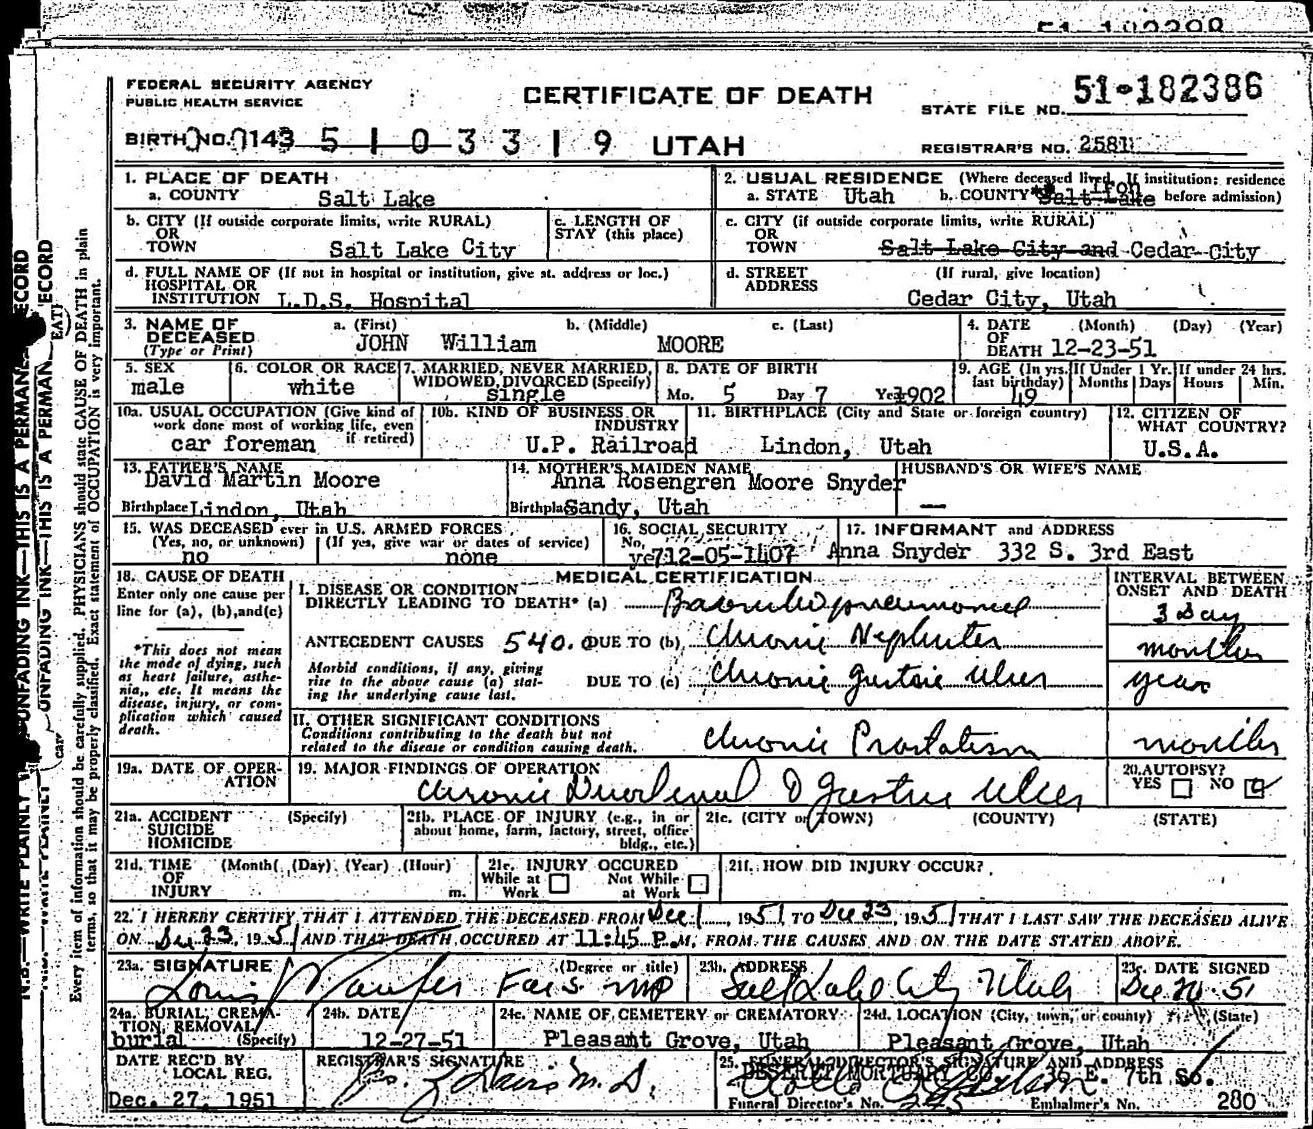 FEDERAL SECURITY AGENCY
PUBLIC HEALTH SERVICE
CERTIFICATE OF DEATH
STATE FILE NO. 51-182386
BIRTH NO. 0143 5 1 0 3 3 1 9 UTAH
REGISTRAR'S NO. 2581
1. PLACE OF DEATH
a. COUNTY Salt Lake
2. USUAL RESIDENCE (Where deceased lived. If institution: residence before admission)
a. STATE Utah b. COUNTY Salt Lake Iron
b. CITY (If outside corporate limits, write RURAL) OR TOWN Salt Lake City
c. LENGTH OF STAY (this place)
c. CITY (if outside corporate limits, write RURAL) OR TOWN Salt Lake City and Cedar City
d. FULL NAME OF (If not in hospital or institution, give st. address or loc.) HOSPITAL OR INSTITUTION L.D.S. Hospital
d. STREET ADDRESS (If rural, give location)
Cedar City, Utah
3. NAME OF DECEASED (Type or Print)
a. (First) b. (Middle) c. (Last)
JOHN William MOORE
4. DATE OF DEATH (Month) (Day) (Year)
12-23-51
5. SEX
male
6. COLOR OR RACE
white
7. MARRIED, NEVER MARRIED, WIDOWED, DIVORCED (Specify)
single
8. DATE OF BIRTH
Mo. 5 Day 7 Year 1902
9. AGE (In yrs. last birthday) 49
If Under 1 Yr. Months Days
If under 24 hrs. Hours Min.
10a. USUAL OCCUPATION (Give kind of work done most of working life, even if retired)
car foreman
10b. KIND OF BUSINESS OR INDUSTRY
U.P. Railroad
11. BIRTHPLACE (City and State or foreign country)
Lindon, Utah
12. CITIZEN OF WHAT COUNTRY?
U.S.A.
13. FATHER'S NAME
David Martin Moore
Birthplace Lindon, Utah
14. MOTHER'S MAIDEN NAME
Anna Rosengren Moore Snyder
Birthplace Sandy, Utah
HUSBAND'S OR WIFE'S NAME
—
15. WAS DECEASED ever in U.S. ARMED FORCES
(Yes, no, or unknown) (If yes, give war or dates of service)
no none
16. SOCIAL SECURITY No.
712-05-1407
17. INFORMANT and ADDRESS
Anna Snyder 332 S. 3rd East
18. CAUSE OF DEATH
Enter only one cause per line for (a), (b), and (c)
*This does not mean the mode of dying, such as heart failure, asthenia, etc. It means the disease, injury, or complication which caused death.
MEDICAL CERTIFICATION
INTERVAL BETWEEN ONSET AND DEATH
I. DISEASE OR CONDITION
DIRECTLY LEADING TO DEATH* (a) Bronchopneumonia 3 Day
ANTECEDENT CAUSES 540.0 DUE TO (b) Chronic Nephritis months
Morbid conditions, if any, giving rise to the above cause (a) stating the underlying cause last.
DUE TO (c) Chronic gastric ulcer years
II. OTHER SIGNIFICANT CONDITIONS
Conditions contributing to the death but not related to the disease or condition causing death.
Chronic Prostatism months
19a. DATE OF OPERATION
19. MAJOR FINDINGS OF OPERATION
Chronic Duodenal & Gastric Ulcer
20. AUTOPSY?
YES NO
21a. ACCIDENT SUICIDE HOMICIDE (Specify)
21b. PLACE OF INJURY (e.g., in or about home, farm, factory, street, office bldg., etc.)
21c. (CITY or TOWN) (COUNTY) (STATE)
21d. TIME OF INJURY (Month) (Day) (Year) (Hour) m.
21e. INJURY OCCURED
While at Work Not While at Work
21f. HOW DID INJURY OCCUR?
22. I HEREBY CERTIFY THAT I ATTENDED THE DECEASED FROM Dec 1, 1951 TO Dec 23, 1951 THAT I LAST SAW THE DECEASED ALIVE
ON Dec 23, 1951 AND THAT DEATH OCCURED AT 11:45 P.M. FROM THE CAUSES AND ON THE DATE STATED ABOVE.
23a. SIGNATURE (Degree or title)
Louis
23b. ADDRESS
Salt Lake City Utah
23c. DATE SIGNED
24a. BURIAL, CREMATION, REMOVAL (Specify)
burial
24b. DATE
12-27-51
24c. NAME OF CEMETERY or CREMATORY
Pleasant Grove, Utah
24d. LOCATION (City, town, or county) (State)
Pleasant Grove, Utah
DATE REC'D BY LOCAL REG.
Dec. 27, 1951
REGISTRAR'S SIGNATURE
M.D.
25. FUNERAL DIRECTOR'S SIGNATURE AND ADDRESS
DESERET MORTUARY CO. 36 E. 7th So.
Funeral Director's No. 245 Embalmer's No. 280
Every item of information should be carefully supplied. PHYSICIANS should state CAUSE OF DEATH in plain
terms, so that it may be properly classified. Exact statement of OCCUPATION is very important.
N.B.—WRITE PLAINLY UNFADING INK—THIS IS A PERMANENT RECORD